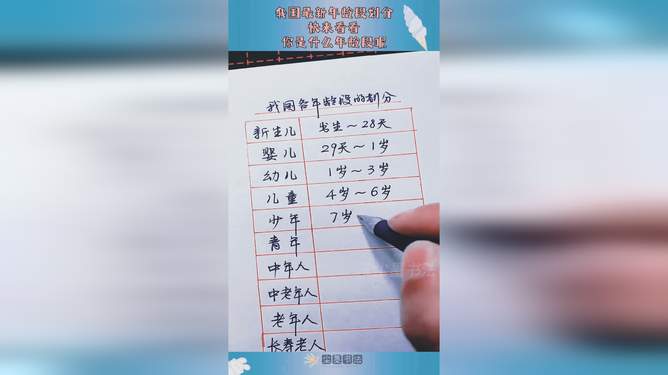 我国最新年龄段划分
快来看看
你是什么年龄段呢
我国各年龄段的划分
新生儿 出生～28天
婴儿 29天～1岁
幼儿 1岁～3岁
儿童 4岁～6岁
少年 7岁
青年
中年人
中老年人
老年人
长寿老人